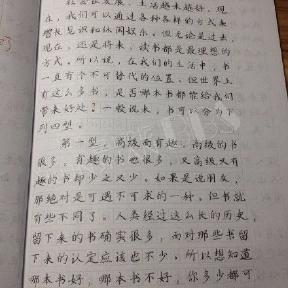 社会在发展，生活越来越好，现
在，我们可以通过各种各样的方式来
增长见识和休闲娱乐。但无论是过来，
现在，还是将来，读书都是最理想的
方式。所以说，在我们的生活中，书
一直有个不可替代的位置。但世界上
有这么多书，是否哪本书都能给我们
带来好处？一般说来，书可以分为下
列四型。
第一型，高级而有趣。高级的书
很多，有趣的书也很多，又高级又有
趣的书却少之又少。如果是说朋友，
那绝对是可遇不可求的一种。但书就
有些不同了。人类经过这么长的历史，
留下来的书确实很多，而对那些书留
下来的认定应该也不少。所以想知道
哪本书好，哪本书不好，你多少都可